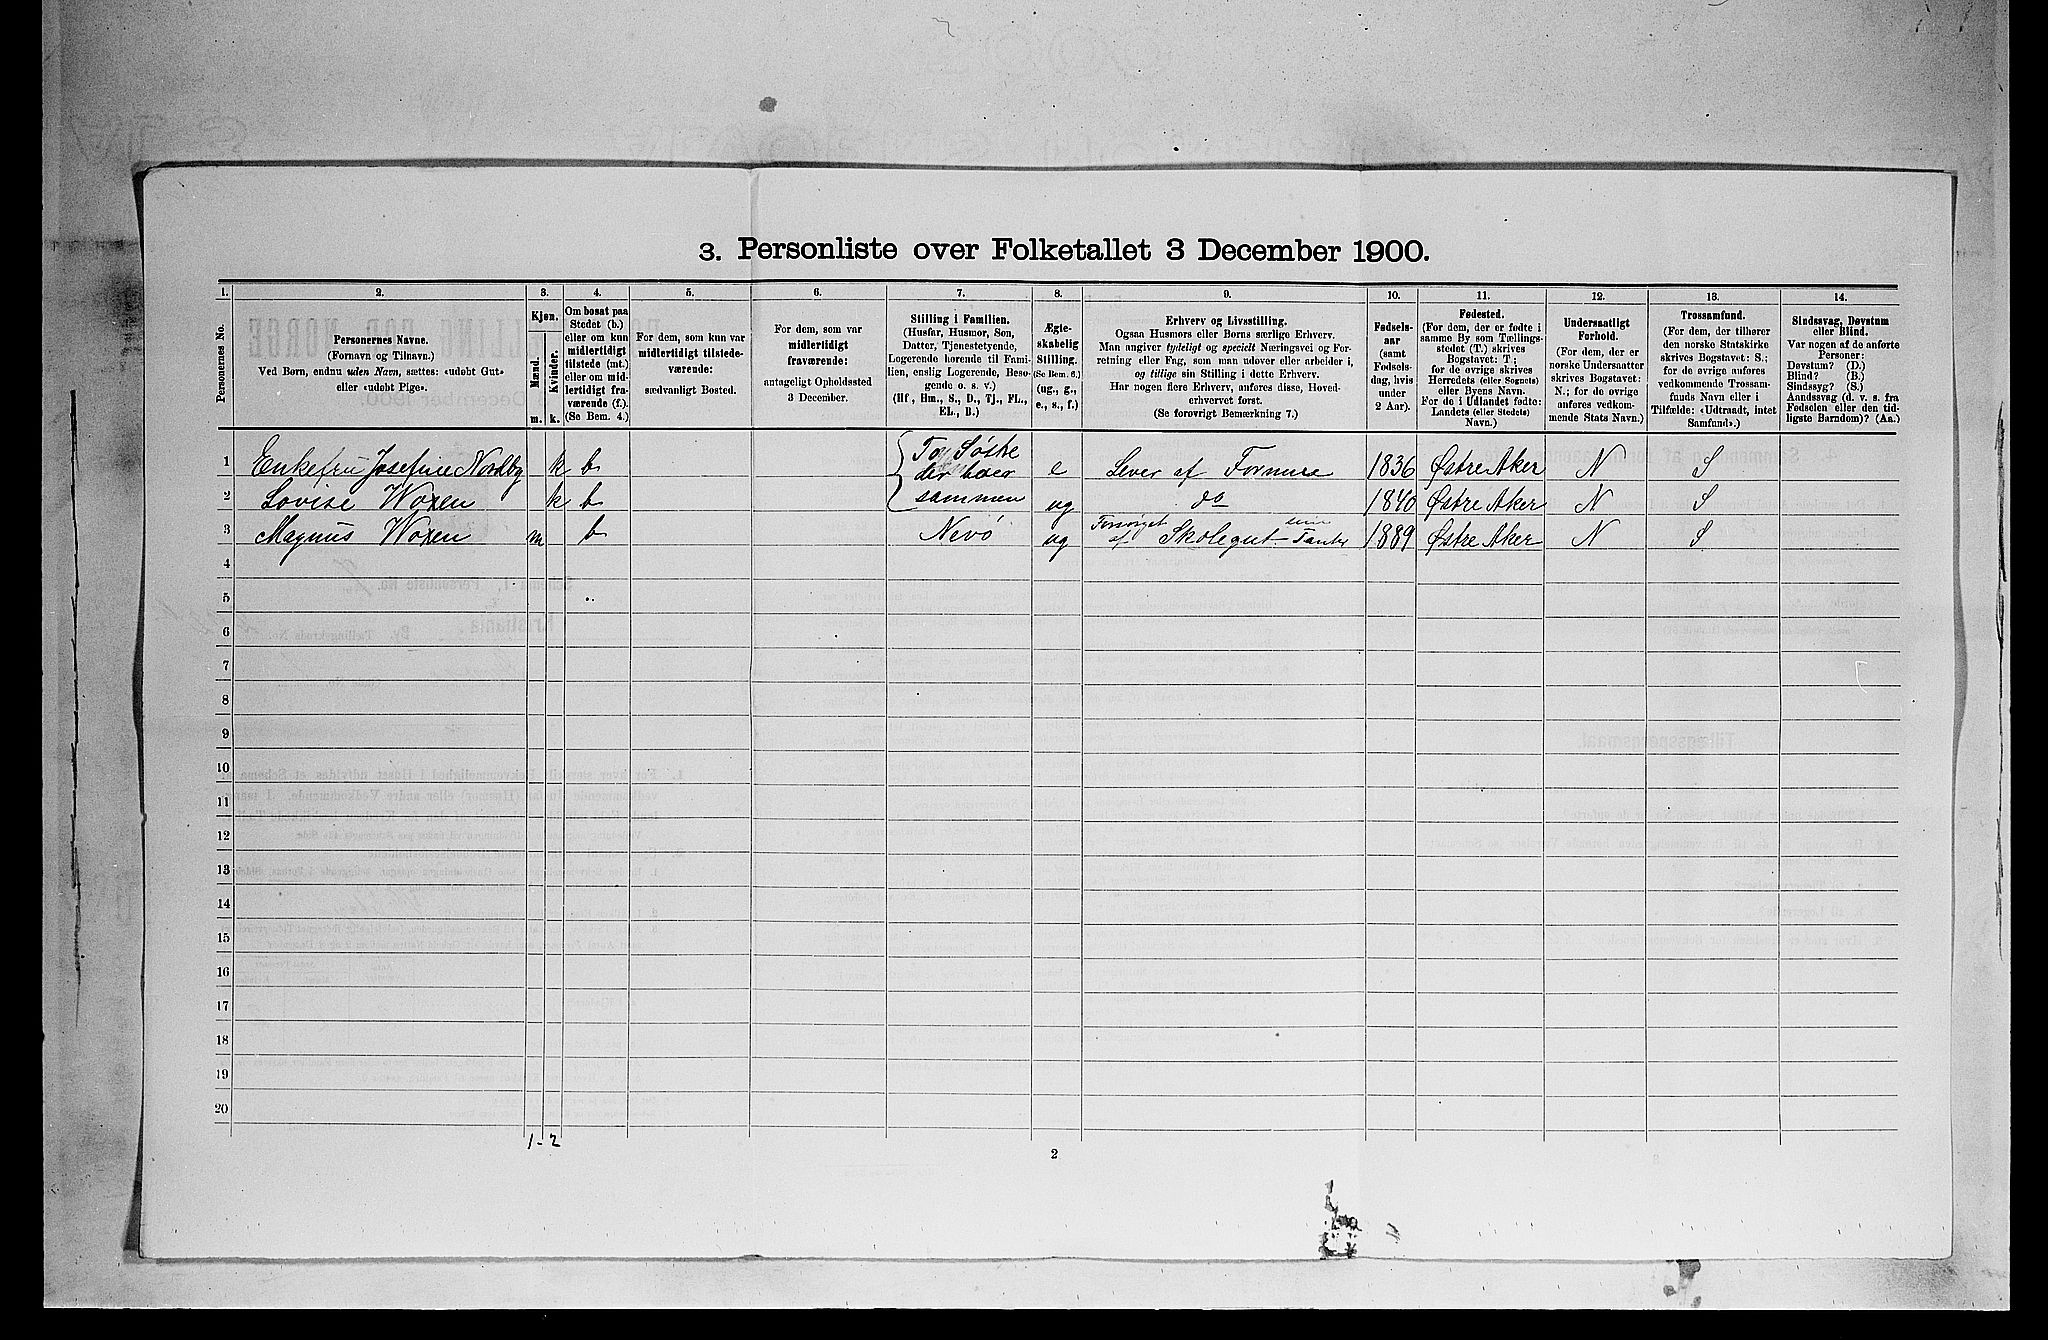 3. Personliste over Folketallet 3 December 1900.
1. 2. 3. 4. 5. 6. 7. 8. 9. 10. 11. 12. 13. 14.
Personernes No.
Personernes Navne.
(Fornavn og Tilnavn.)
Ved Børn, endnu uden Navn, sættes: «udøbt Gut»
eller «udøbt Pige».
Kjøn.
Mænd.
Kvinder.
m. k.
Om bosat paa
Stedet (b.)
eller om kun
midlertidigt
tilstede (mt.)
eller om mid-
lertidigt fra-
værende (f.).
(Se Bem. 4.)
For dem, som kun var
midlertidigt tilstede-
værende:
sædvanligt Bosted.
For dem, som var
midlertidigt
fraværende:
antageligt Opholdssted
3 December.
Stilling i Familien.
(Husfar, Husmor, Søn,
Datter, Tjenestetyende,
Logerende hørende til Fami-
lien, enslig Logerende, Besø-
gende o. s. v.)
(Hf., Hm., S., D., Tj., FL.,
EL., B.)
Ægte-
skabelig
Stilling.
(Se Bem. 6.)
(ug., g.,
e., s., f.)
Erhverv og Livsstilling.
Ogsaa Husmors eller Børns særlige Erhverv.
Man angiver tydeligt og specielt Næringsvei og For-
retning eller Fag, som man udøver eller arbeider i,
og tillige sin Stilling i dette Erhverv.
Har nogen flere Erhverv, anføres disse, Hoved-
erhvervet først.
(Se forøvrigt Bemerkning 7.)
Fødsels-
aar
(samt
Fødsels-
dag, hvis
under
2 Aar).
Fødested.
(For dem, der er fødte i
samme By som Tællings-
stedet (T.) skrives
Bogstavet: T;
for de øvrige skrives
Herredets (eller Sognets)
eller Byens Navn.
For de i Udlandet fødte:
Landets (eller Stedets)
Navn.)
Undersaatligt
Forhold.
(For dem, der er
norske Undersaatter
skrives Bogstavet:
N.; for de øvrige
anføres vedkom-
mende Stats Navn.)
Trossamfund.
(For dem, der tilhører
den norske Statskirke
skrives Bogstavet: S.;
for de øvrige anføres
vedkommende Trossam-
funds Navn eller i
Tilfælde: «Udtraadt, intet
Samfund».)
Sindssvag, Døvstum
eller Blind.
Var nogen af de anførte
Personer:
Døvstum? (D.)
Blind? (B.)
Sindssyg? (S.)
Aandssvag (d. v. s. fra
Fødselen eller den tid-
ligste Barndom)? (Aa.)
1 Enkefru Josefine Nordby k b To Søske der boer e Lever af Formue 1836 Østre Aker N S
2 Lovise Woxen k b sammen ug do 1840 Østre Aker N S
3 Magnus Woxen m b Nevø ug Forsørget af Skolegut sin Tante 1889 Østre Aker N S
4
5
6
7
8
9
10
11
12
13
14
15
16
17
18
19
20
1 - 2
2